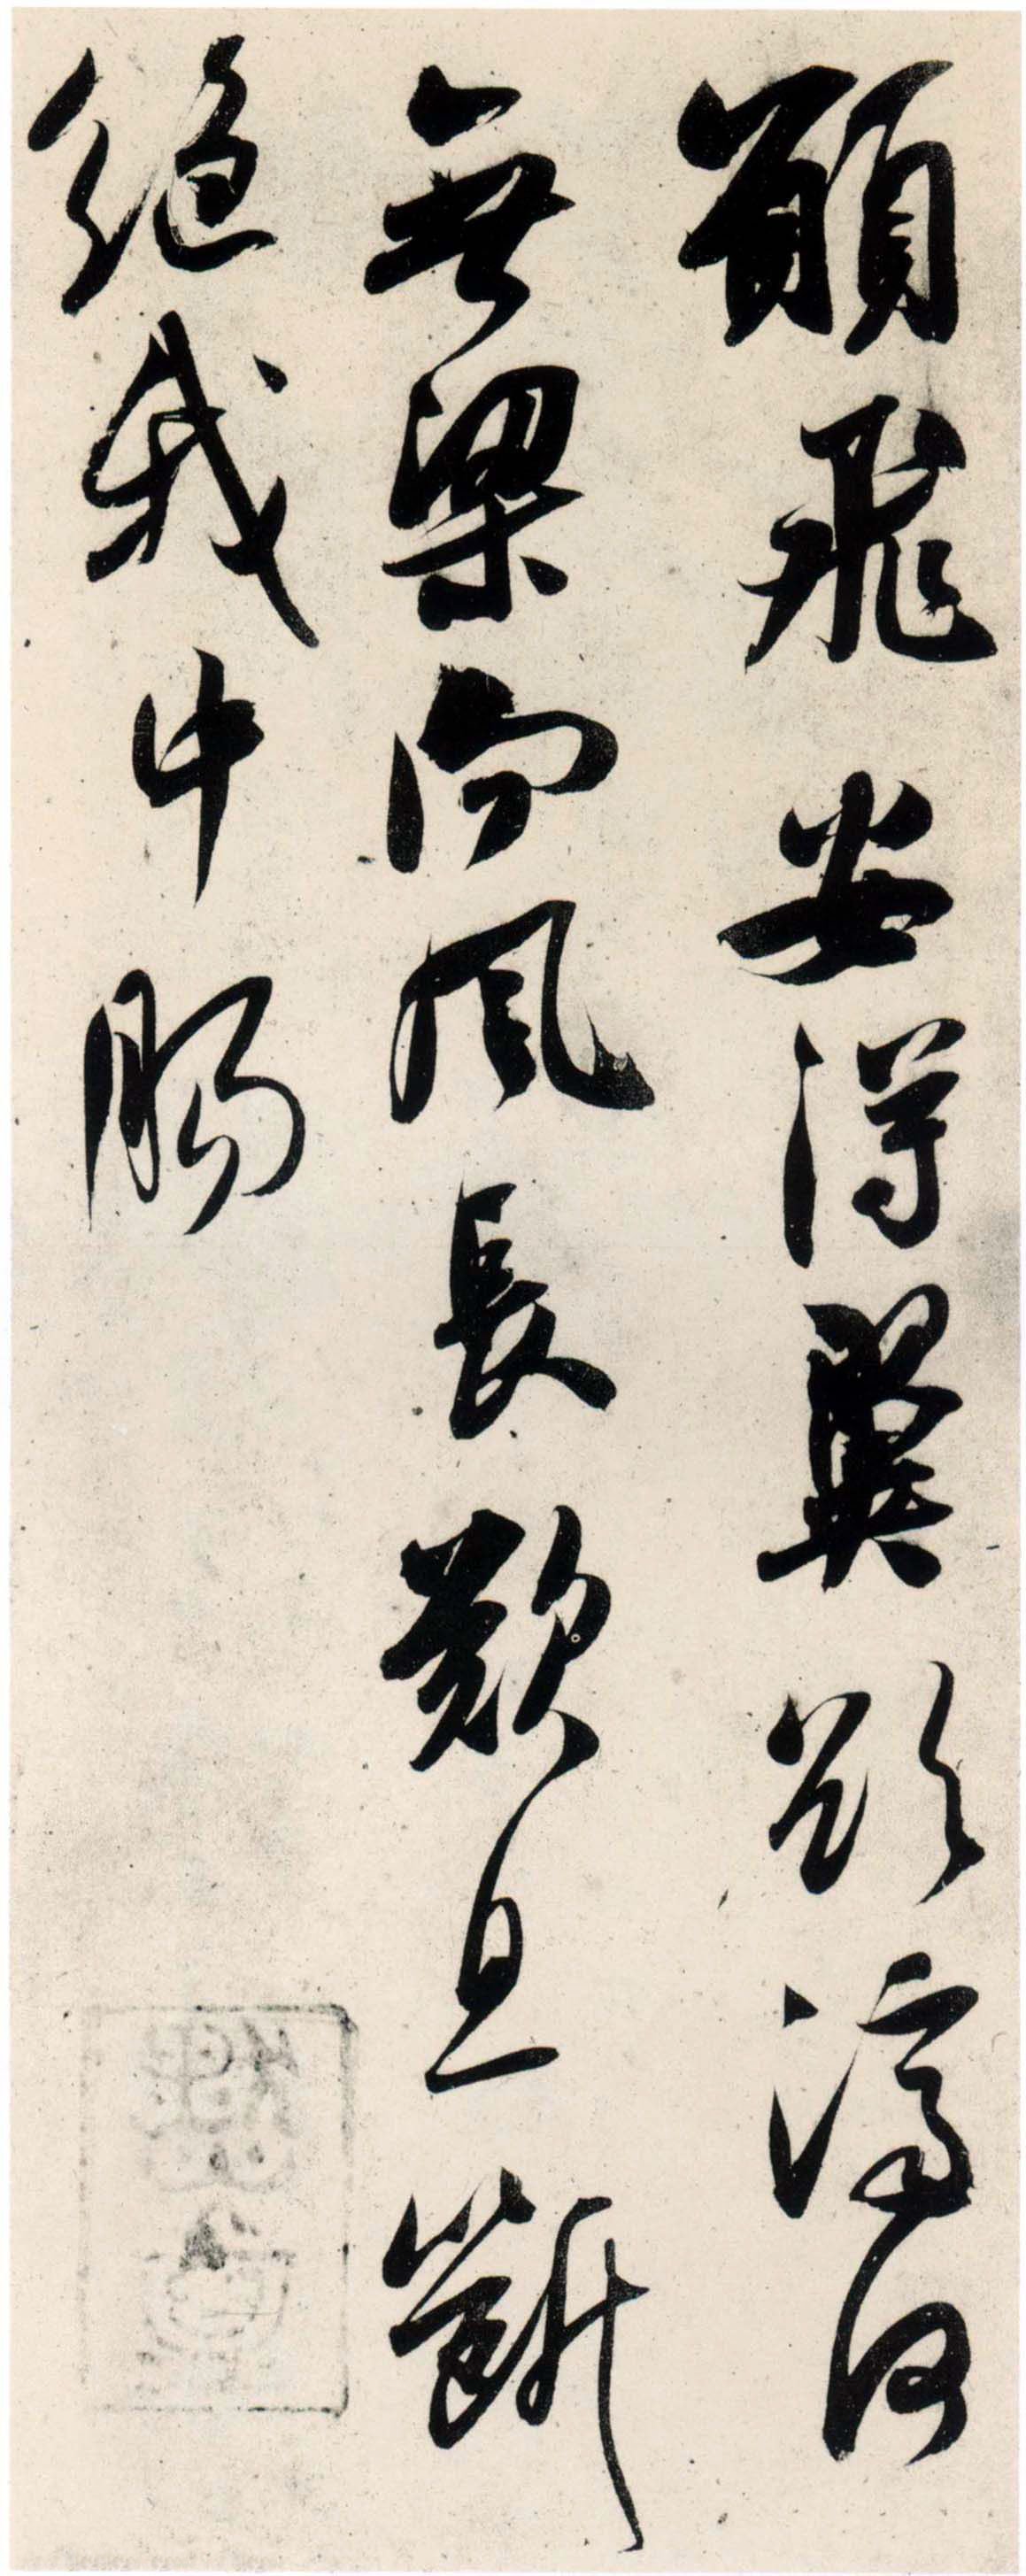 願飛安得翼欲濟河
無梁向風長歎息斷
絶我中腸